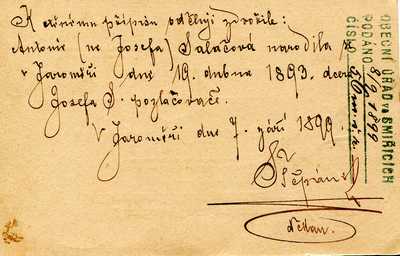 K ctěnému přípisu sděluji zdvořile:
Antonie (ne Josefa) Salačová narodila se
v Jaroměři dne 19. dubna 1893. dcera
Josefa S. pozlačovače.
V Jaroměři dne 7. září 1899.
Štěpán
děkan.
OBECNÍ ÚŘAD VE SMIŘICÍCH
PODÁNO 8/9 1899
ČÍSLO